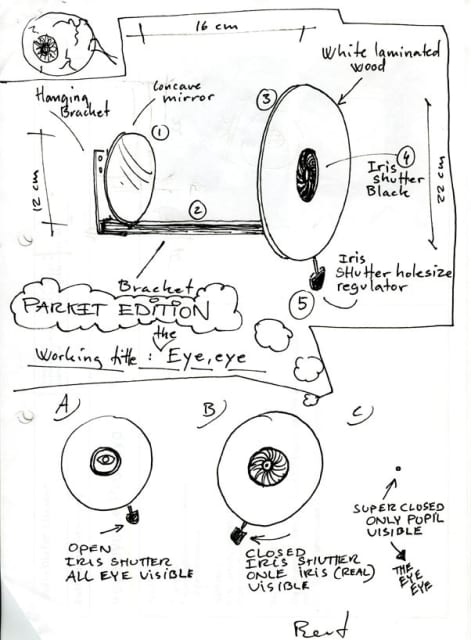 16 cm
White laminated
wood
Hanging
Bracket
Concave
mirror
1
3
12 cm
2
4
Iris
shutter
Black
22 cm
Iris
SHutter holesize
regulator
5
Bracket
PARKET EDITION
the
Working title : Eye, eye
A
B
C
OPEN
IRIS SHUTTER
ALL EYE VISIBLE
CLOSED
IRIS SHUTTER
ONLE IRIS (REAL)
VISIBLE
SUPER CLOSED
ONLY PUPIL
VISIBLE
THE
EYE
EYE